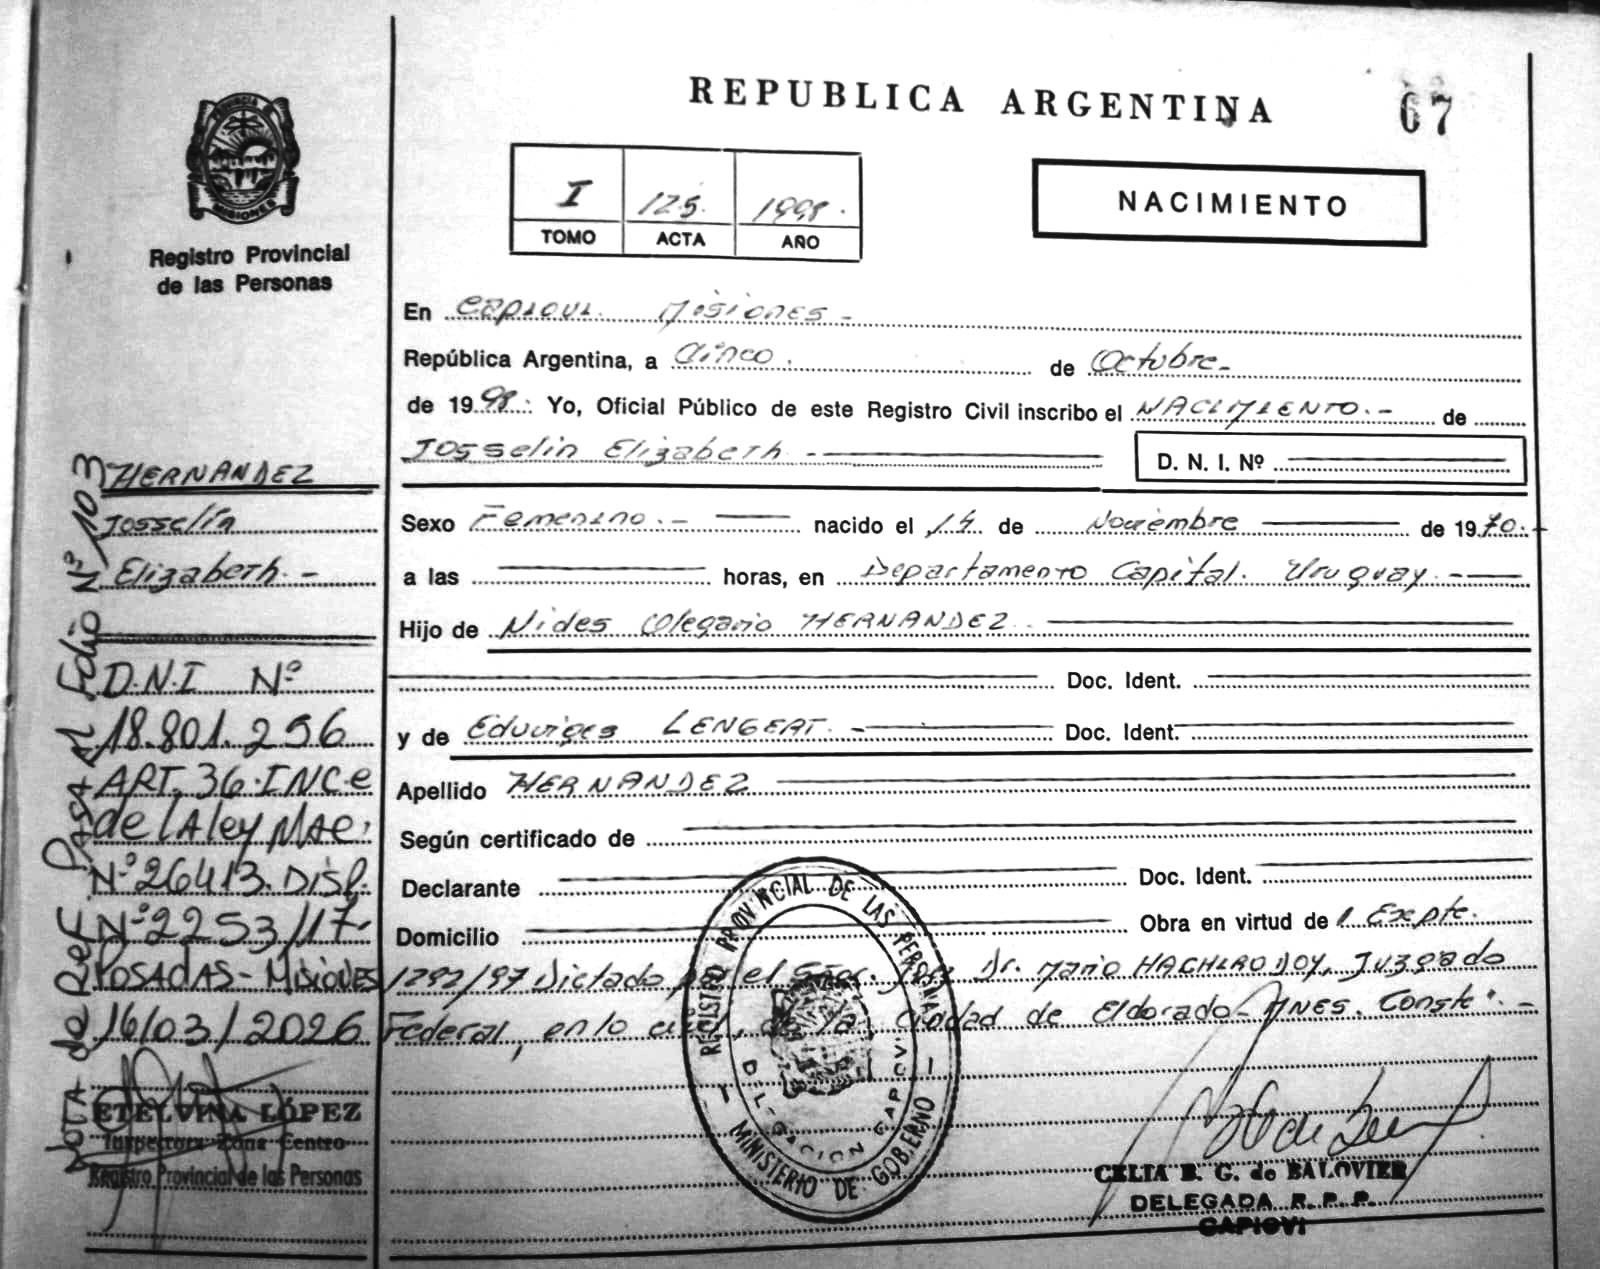 REPUBLICA ARGENTINA
67
PROVINCIA
MISIONES
Registro Provincial
de las Personas
I 125. 1998.
TOMO ACTA AÑO
NACIMIENTO
En Capiovi. Misiones -
República Argentina, a Cinco. de Octubre-
de 1998.: Yo, Oficial Público de este Registro Civil inscribo el NACIMIENTO.- de
Josselin Elizabeth.-
D. N. I. Nº
Sexo Femenino.- nacido el 14. de Noviembre de 1970.-
a las horas, en Departamento Capital. Uruguay.-
Hijo de Nides Olegario HERNANDEZ.
Doc. Ident.
y de Eduviges LENGERT.- Doc. Ident.
Apellido HERNANDEZ
Según certificado de
Declarante Doc. Ident.
Domicilio Obra en virtud de Expte.
1292/97 Dictado el Dr. Mario HACHIRO DOY, Juzgado
Federal, en lo ciudad de Eldorado- MNES. Conste.-
HERNANDEZ
Josselin
Elizabeth.-
D.N.I Nº
18.801.256
ART. 36.INC.e
de lA ley NAC.
Nº26413. DISP.
Nº2253/17.
POSADAS-MISIONES
16/03/2026
ETELVINA LÓPEZ
Inspectora Zona Centro
Registro Provincial de las Personas
NOTA de Ref. PASA AL Folio Nº 103
REGISTRO PROVINCIAL DE LAS PERSONAS
MINISTERIO DE GOBIERNO
DELEGACION CAPIOVI
CELIA B. G. de BALOVIER
DELEGADA R. P. P.
CAPIOVI